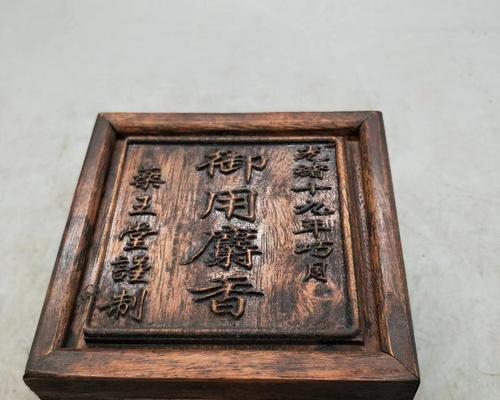 光緒十九年巧月
御用麝香
藥王堂謹制